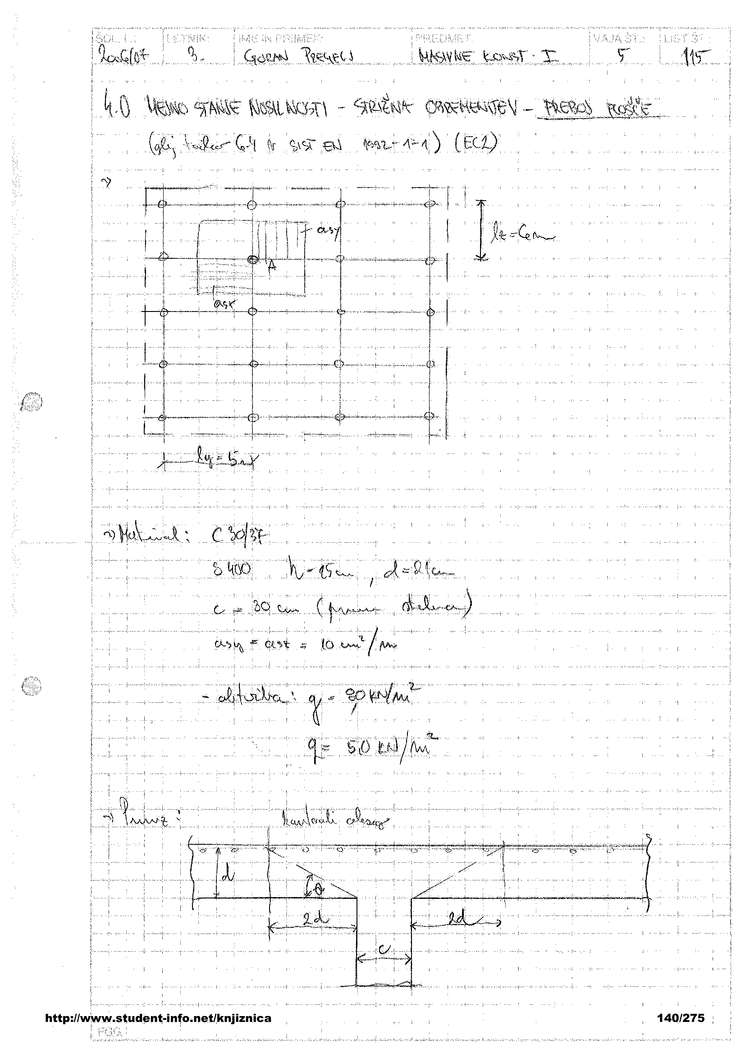 ŠOL. L.: LETNIK: IME IN PRIIMEK: PREDMET: VAJA ŠT.: LIST ŠT.:
2006/07 3. GORAN PREGELJ MASIVNE KONST. I 5 1/5
4.0 MEJNO STANJE NOSILNOSTI - STRIŽNA OBREMENITEV - PREBOJ PLOŠČE
(glej točko 6.4 v SIST EN 1992-1-1) (EC2)
asy
lz = 6m
A
asx
ly = 5m
Material: C 30/37
S 400 h = 25cm, d = 21cm
c = 30 cm
asy = asz = 10 cm²/m
- obtežba: g = 8,0 kN/m²
q = 5,0 kN/m²
Prerez:
kontrolni obseg
d
θ
2d
2d
c
http://www.student-info.net/knjiznica 140/275
FGG